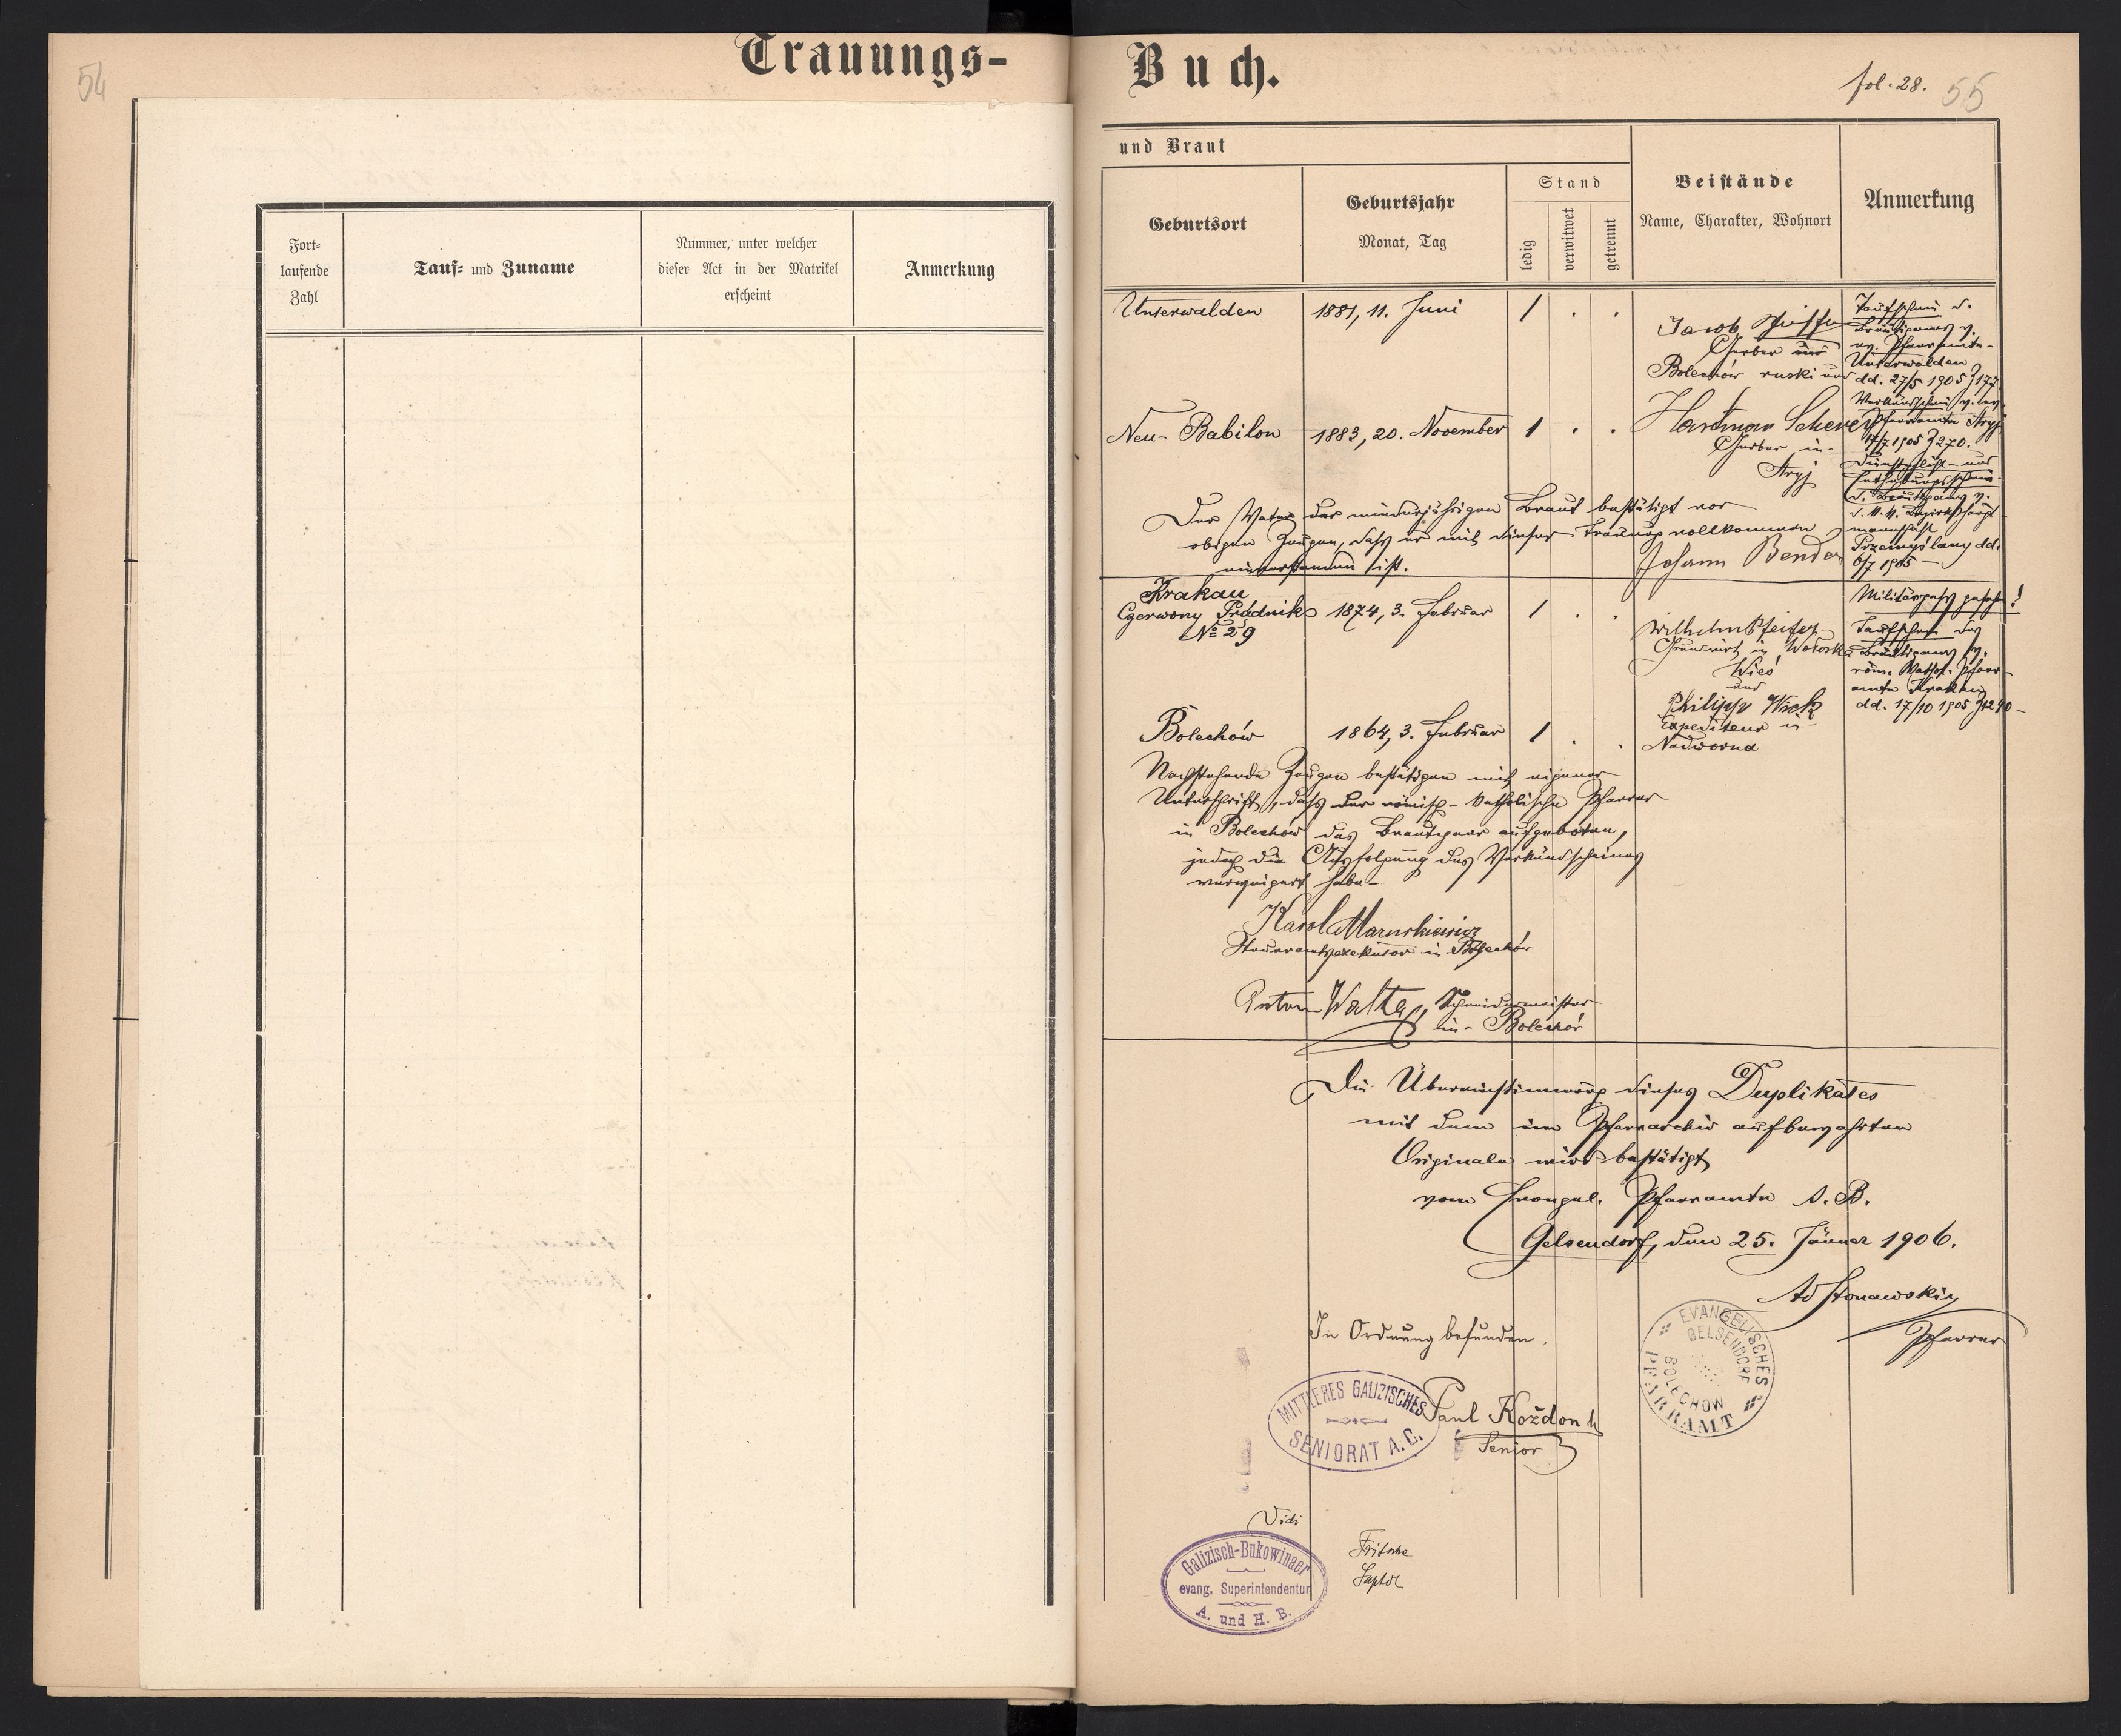 Trauungs-
Buch.
54
fol. 28. 55
Fort-
laufende
Zahl
Tauf- und Zuname
Nummer, unter welcher
dieser Act in der Matrikel
erscheint
Anmerkung
und Braut
Geburtsort
Geburtsjahr
Monat, Tag
Stand
ledig
verwitwet
getrennt
Beistände
Name, Charakter, Wohnort
Anmerkung
Unterwalden
1881, 11. Juni
1 . .
Jacob
Gerber in
Bolechów ruski und
Taufschein d.
Bräutigams v.
ev. Pfarramte
Unterwalden
dd. 27/5 1905 Z 177.
Neu-Babilon
1883, 20. November
1 . .
Hartman Scherer
Gerber in
Stryj
Verkündschein v. ev.
Pfarramte Stryj
17/7 1905 Z 270.
d. Bräutigams v.
d. k. k. Bezirkshaupt-
mannschaft
Przemyślany dd.
6/7 1905
Der Vater der minderjährigen Braut bestätigt vor
obigen Zeugen, dass er mit dieser Trauung vollkommen
einverstanden ist.
Johann Bender
Krakau
Czerwony Prądnik
№ 29
1874, 3. Februar
1 . .
Wilhelm Pfeifer
Grundwirt in Wołoska
Wieś
und
Philipp Wick
Expediteur in
Nadworna
Militärpass gesehen!
Taufschein des
Bräutigams v.
röm. kathol. Pfarr-
amte Krakau
dd. 17/10 1905
Bolechów
1864, 3. Februar
1 . .
Nachstehende Zeugen bestätigen mit eigener
Unterschrift, dass der römisch-katholische Pfarrer
in Bolechów das Brautpaar aufgeboten,
jedoch die Ausfolgung des Verkündscheines
verweigert habe.
Karol
Steueramtsexekutor in Bolechów
Anton Walter, Schneidermeister
in Bolechów
Die Übereinstimmung dieses Duplikates
mit dem im Pfarrarchiv aufbewahrten
Originale wird bestätigt
vom Evangel. Pfarramte A. B.
Gelsendorf, den 25. Jänner 1906.
Pfarrer
EVANGELISCHES
PFARRAMT
GELSENDORF
BOLECHOW
In Ordnung befunden.
MITTLERES GALIZISCHES
SENIORAT A. C.
Paul Kożdoń
Senior
Vidi
Galizisch-Bukowinaer
evang. Superintendentur
A. und H. B.
Fritsche